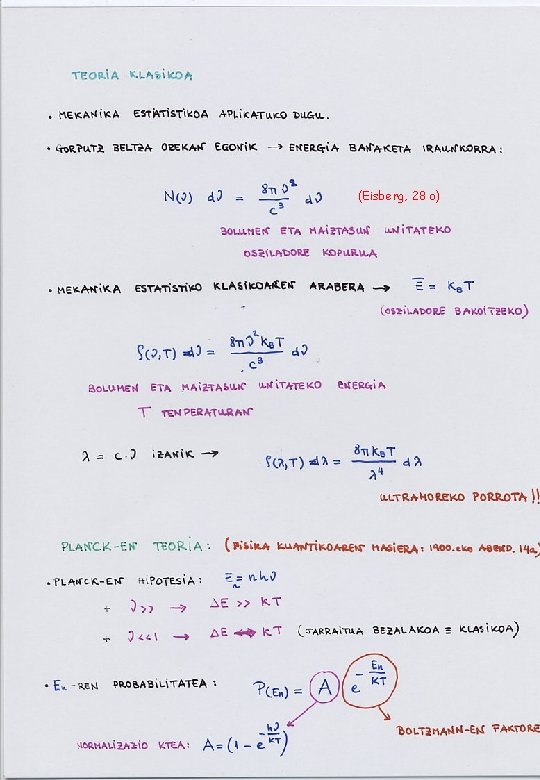 TEORIA KLASIKOA
• MEKANIKA ESTATISTIKOA APLIKATUKO DUGU.
• GORPUTZ BELTZA OREKAN EGONIK → ENERGIA BANAKETA IRAUNKORRA:
N(ν) dν = 8πν²/c³ dν (Eisberg, 28 o)
BOLUMEN ETA MAIZTASUN UNITATEKO
OSZILADORE KOPURUA
• MEKANIKA ESTATISTIKO KLASIKOAREN ARABERA → Ē = K_B T
(OSZILADORE BAKOITZEKO)
ρ(ν,T) dν = 8πν² K_B T/c³ dν
BOLUMEN ETA MAIZTASUN UNITATEKO ENERGIA
T TENPERATURAN
λ = c.ν IZANIK →
ρ(λ,T) dλ = 8π K_B T/λ⁴ dλ
ULTRAMOREKO PORROTA!!
PLANCK-EN TEORIA: (FISIKA KUANTIKOAREN HASIERA: 1900.eko ABEND. 14a)
• PLANCK-EN HIPOTESIA: E_n = nhν
+ ν>> → ΔE >> KT
+ ν<<1 → ΔE << KT (JARRAITUA BEZALAKOA ≡ KLASIKOA)
• En-REN PROBABILITATEA: P(En) = A e^(-En/KT)
BOLTZMANN-EN FAKTORE
NORMALIZAZIO KTEA: A = (1 - e^(-hν/KT))